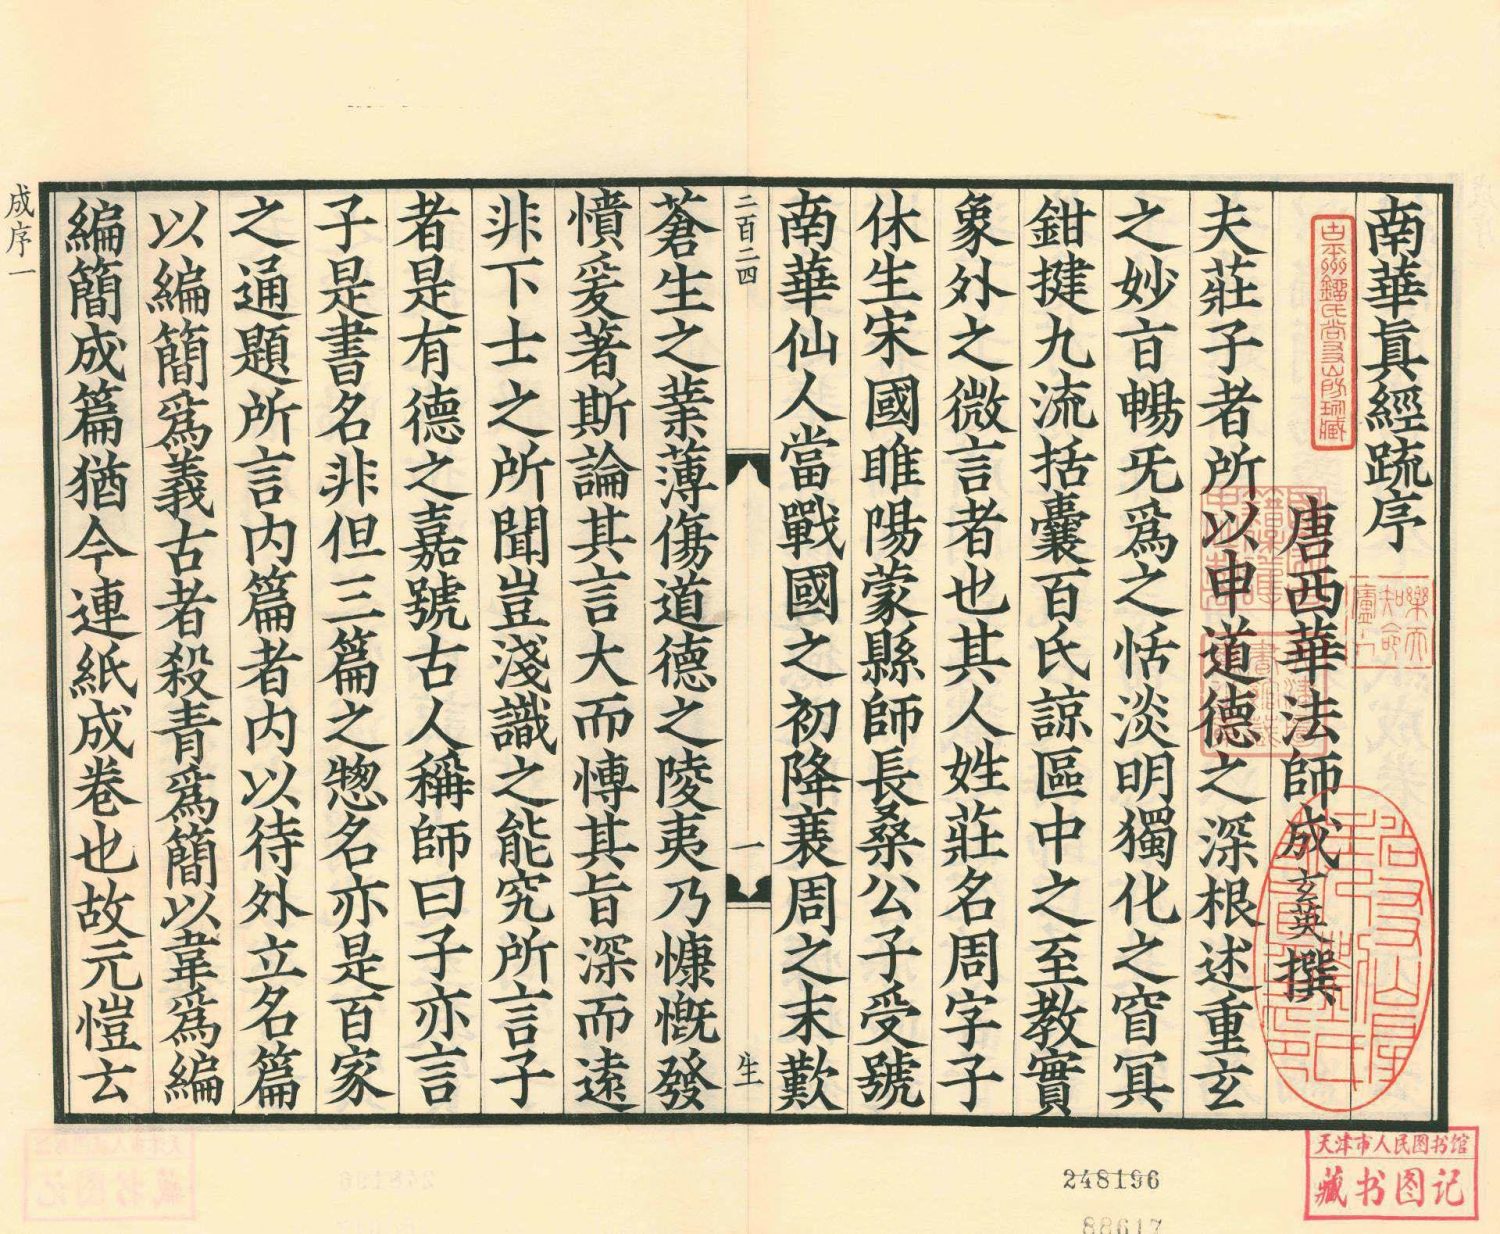 南華眞經䟽序
唐西華法師成玄英撰
夫莊子者所以申道德之深根述重玄
之妙㫖暢旡爲之恬淡明獨化之窅冥
鉗揵九流括囊百氏諒區中之至教實
象外之微言者也其人姓莊名周字子
休生宋國睢陽蒙縣師長桑公子受號
南華仙人當戰國之初降衰周之末歎
二百二四
一
生
蒼生之業薄傷道德之陵夷乃慷慨發
憤爰著斯論其言大而愽其旨深而遠
非下士之所聞豈淺識之能究所言子
者是有德之嘉號古人稱師曰子亦言
子是書名非但三篇之惣名亦是百家
之通題所言内篇者内以待外立名篇
以編簡爲義古者殺青爲簡以韋爲編
編簡成篇猶今連紙成卷也故元愷云
成序一
天津市人民图书馆
藏书图记
248196
88617